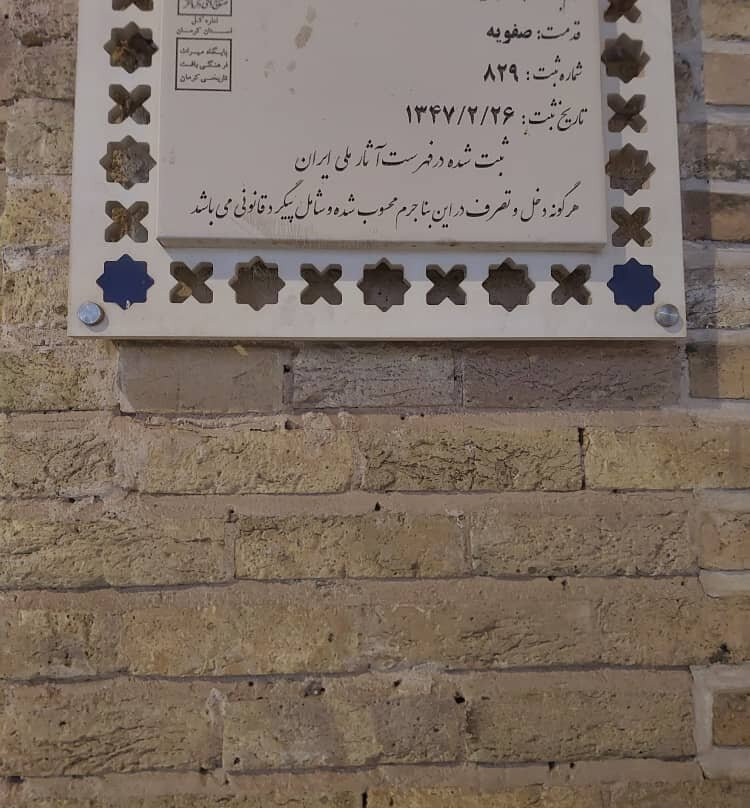 قدمت: صفویه
شماره ثبت: ۸۲۹
تاریخ ثبت: ۱۳۴۷/۲/۲۶
ثبت شده در فهرست آثار ملی ایران
هرگونه دخل و تصرف در این بنا جرم محسوب شده و شامل پیگرد قانونی می باشد
اداره کل
استان کرمان
پایگاه میراث
فرهنگی بافت
تاریخی کرمان